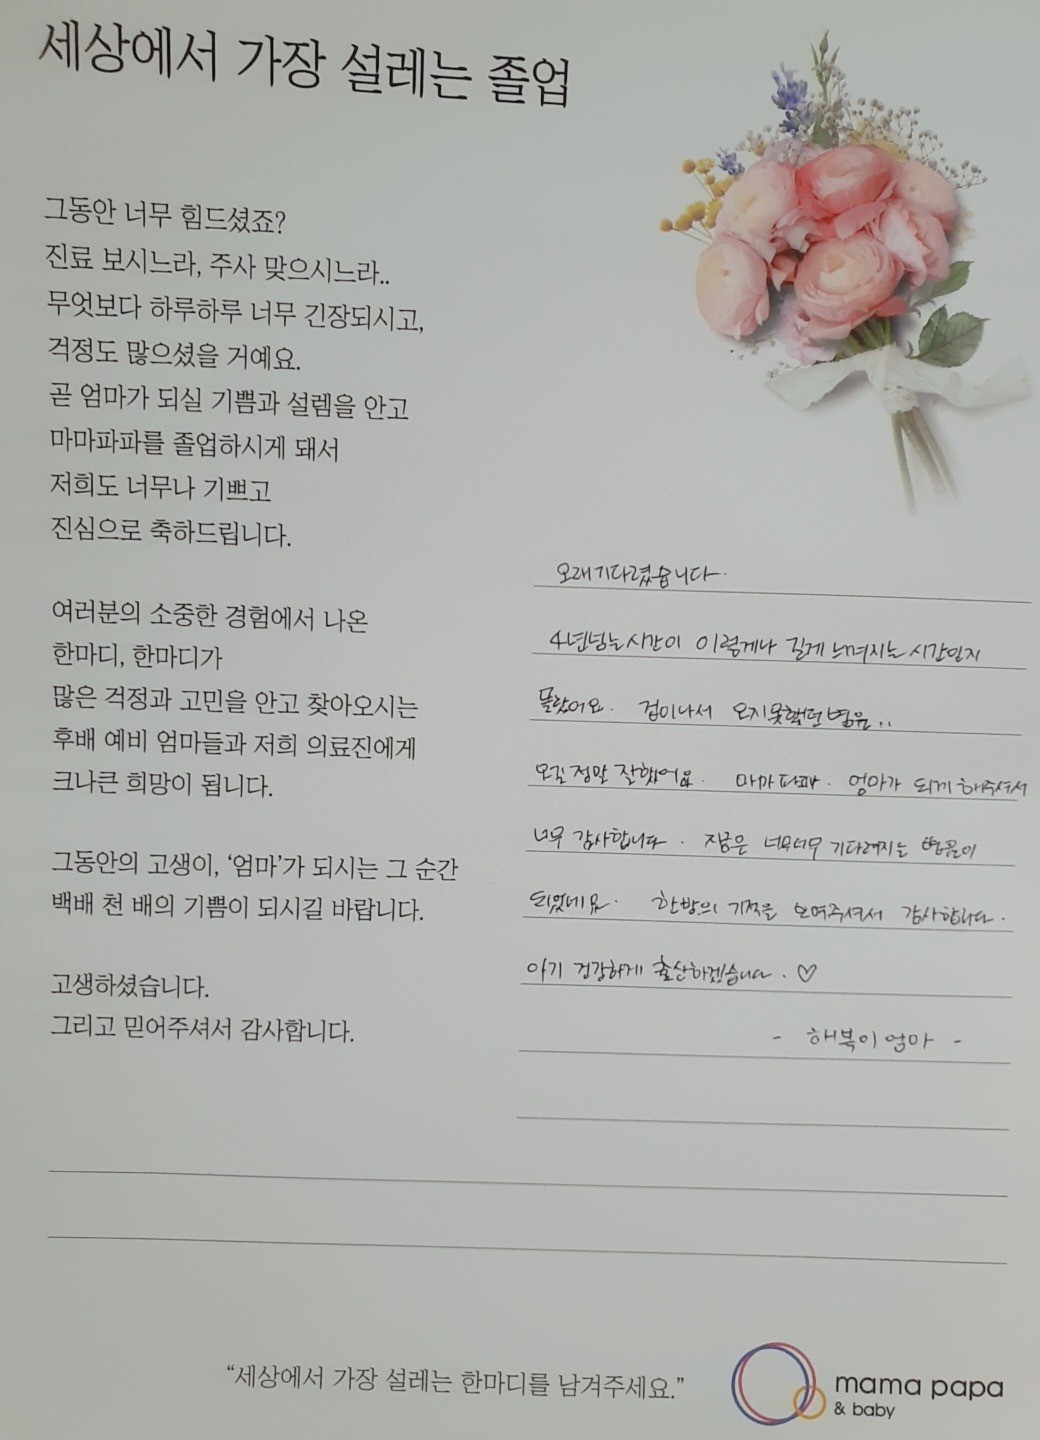 세상에서 가장 설레는 졸업
그동안 너무 힘드셨죠?
진료 보시느라, 주사 맞으시느라..
무엇보다 하루하루 너무 긴장되시고,
걱정도 많으셨을 거예요.
곧 엄마가 되실 기쁨과 설렘을 안고
마마파파를 졸업하시게 돼서
저희도 너무나 기쁘고
진심으로 축하드립니다.
여러분의 소중한 경험에서 나온
한마디, 한마디가
많은 걱정과 고민을 안고 찾아오시는
후배 예비 엄마들과 저희 의료진에게
크나큰 희망이 됩니다.
그동안의 고생이, ‘엄마’가 되시는 그 순간
백배 천 배의 기쁨이 되시길 바랍니다.
고생하셨습니다.
그리고 믿어주셔서 감사합니다.
오래기다렸습니다.
4년넘는시간이 이렇게나 길게 느껴지는 시간인지
몰랐어요. 겁이나서 오지못했던병원..
오길정말 잘했어요. 마마파파. 엄마가 되게 해주셔서
너무 감사합니다. 지금은 너무너무 기다려지는
되었네요. 한방의 기적을 보여주셔서 감사합니다.
아기 건강하게 출산하겠습니다. ♡
- 해복이엄마 -
“세상에서 가장 설레는 한마디를 남겨주세요.”
mama papa
& baby